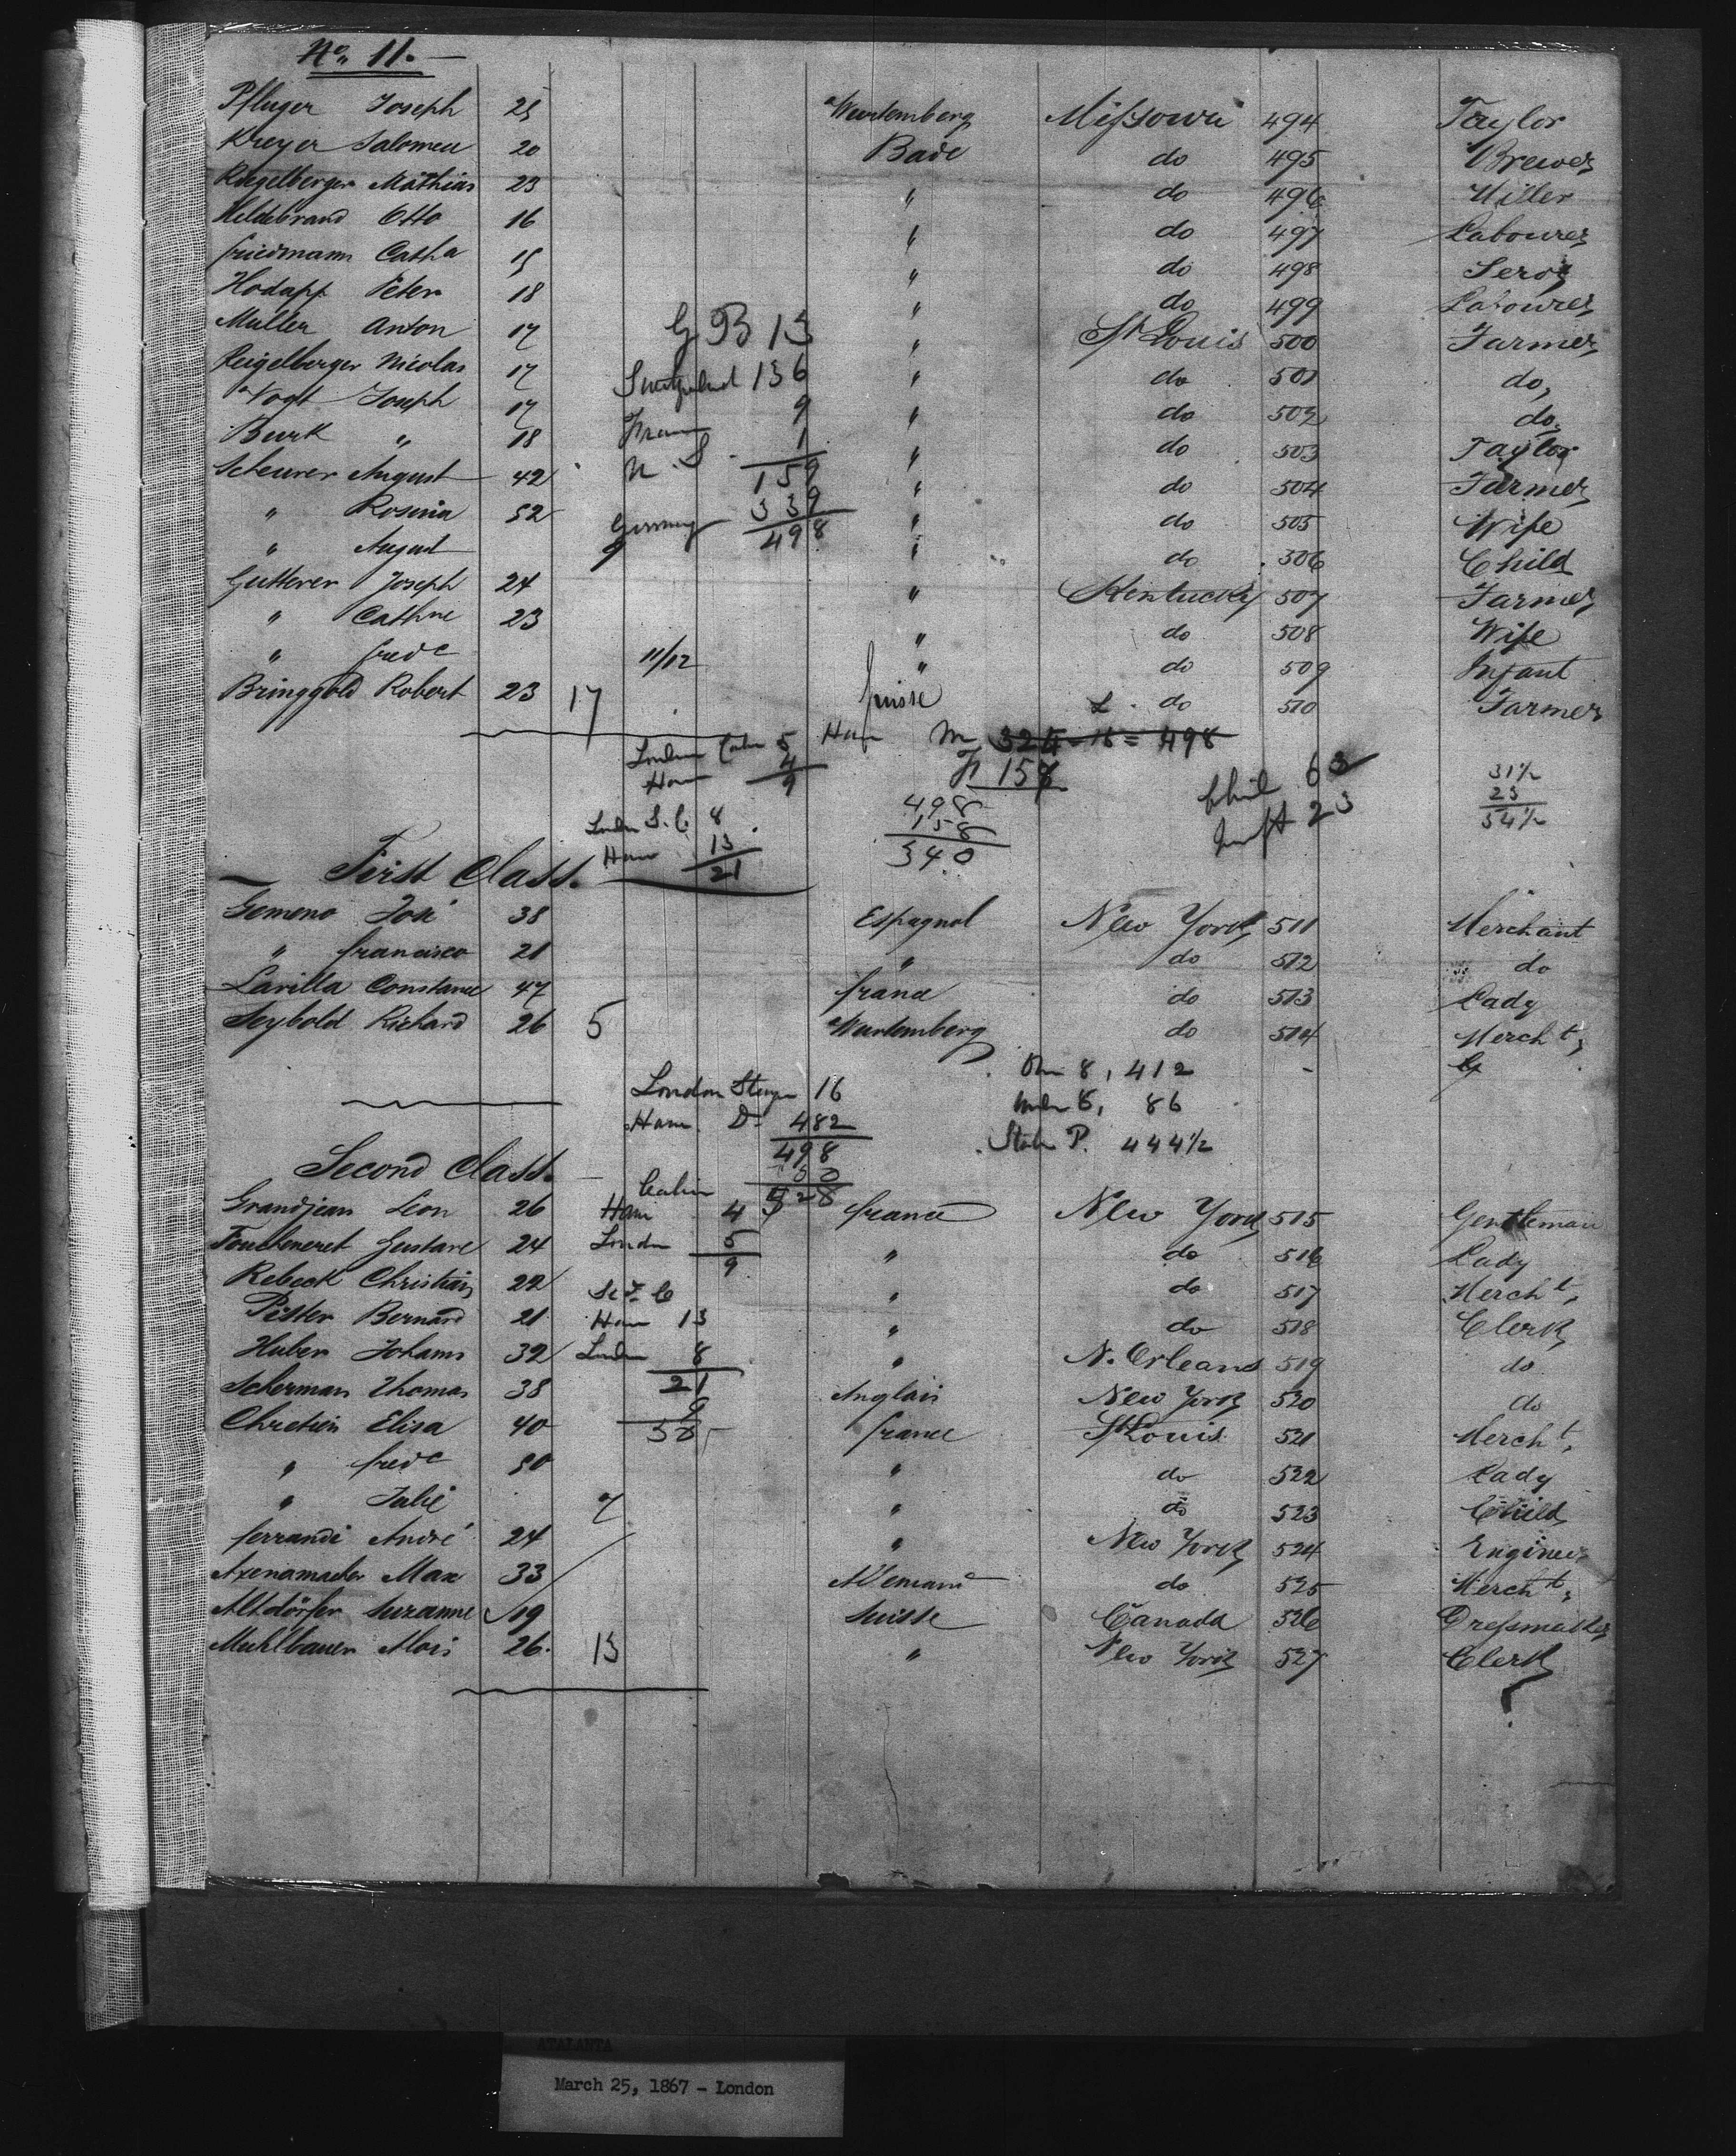 No. 11.
Pfluger Joseph 25 Wurtemberg Missouri 494 Taylor
Kreyer Salomea 20 Bade do 495 Brewer
Riegelberger Mathias 23 " do 496 Miller
Hildebrand Otto 16 " do 497 Labourer
friedmann Catha 15 " do 498 Servt
Hodapp Peter 18 " do 499 Labourer
Muller Anton 17 " St Louis 500 Farmer
Reigelberger Nicolas 17 " do 501 do,
Vogt Joseph 17 " do 502 do,
Burk " 18 " do 503 Taylor
Scheurer August 42 " do 504 Farmer
" Rosina 52 " do 505 Wife
" August " do 506 Child
Gutterer Joseph 24 " Kentucky 507 Farmer
" Cathne 23 " do 508 Wife
" fredc 11/12 " do 509 Infant
Bringgold Robert 23 17 suisse do 510 Farmer
G B 13
Switzerland 136
France 9
1
159
Germany 339
498
M 324 - 16 = 498
F 158
498
158
340
Chil 63
Inft 23
31½
23
54½
London Cabin 5
Havr 4
9
London S. C. 8
Havr 13
21
First Class.
Gemeno José 38 Espagnol New York 511 Merchant
" francisco 21 " do 512 do
Lavilla Constance 47 france do 513 Lady
Seybold Richard 26 5 Wurtemberg do 514 Mercht,
London Steerge 16
Havr. Do 482
498
30
528
Over 8, 412
under 8, 86
State P. 444½
Second Class.
Grandjean Léon 26 france New York 515 Gentleman
Foucheneret Gustave 24 " do 516 Lady
Rebeck Christian 22 " do 517 Mercht,
Pister Bernard 21 " do 518 Clerk
Huber Johann 32 " N. Orleans 519 do
Scherman Thomas 38 Anglais New York 520 do
Chretien Elisa 40 france St Louis 521 Mercht,
" fredc 30 " do 522 Lady
" Julie 7 " do 523 Child
ferrandi André 24 " New York 524 Engineer
Axenamader Max 33 Allemand do 525 Mercht,
Altdörfer Suzanne 19 Suisse Canada 526 Dressmaker
Muhlbauer Alois 26. 13 " New York 527 Clerk
Cabin
Havr 4
London 5
9
Havr 13
London 8
21
9
30
ATALANTA
March 25, 1867 - London